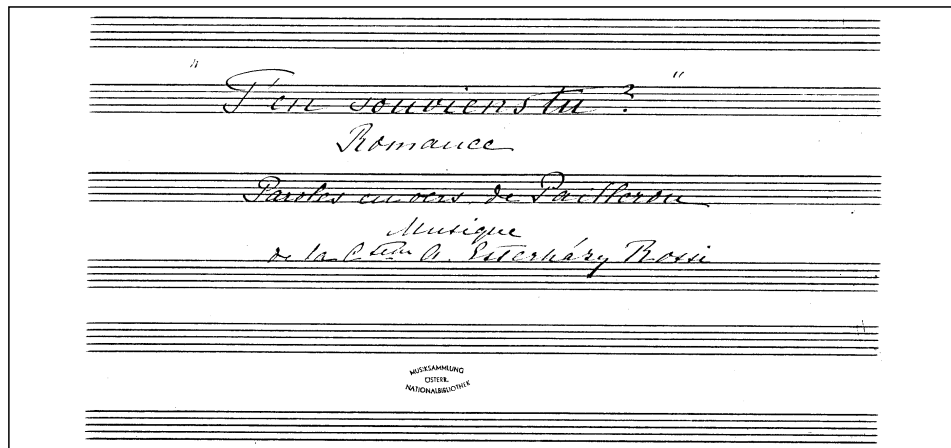 "T'en souviens tu?"
Romance
Paroles en vers de Pailleron
Musique
de la Ctesse A. Esterházy Rossi
MUSIKSAMMLUNG
ÖSTERR.
NATIONALBIBLIOTHEK